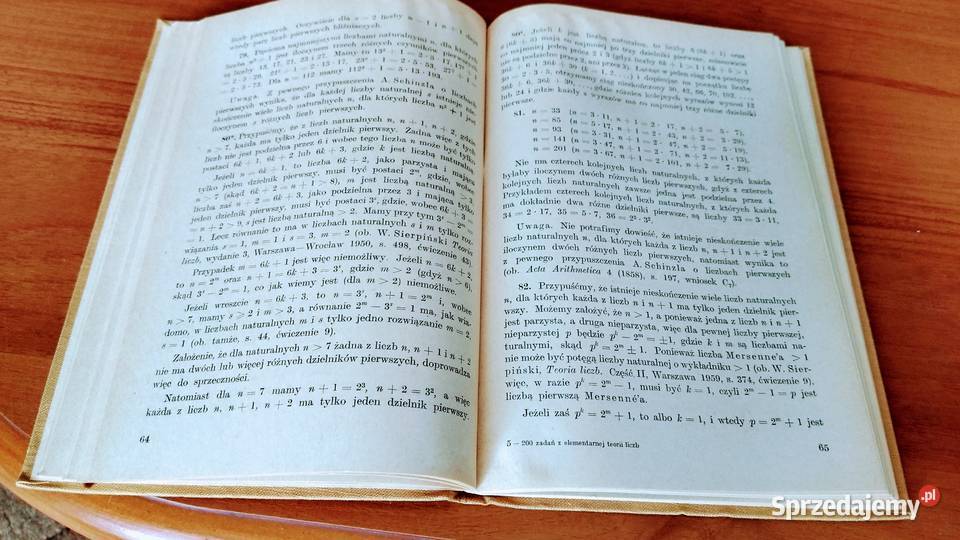 liczb pierwszych. Oczywiście dla s = 2 liczby n — 1 i n + 1 dają
wtedy parę liczb pierwszych bliźniaczych.
79. Pięcioma najmniejszymi liczbami naturalnymi n, dla których
liczba n² + 1 jest iloczynem trzech różnych czynników pierwszych,
są liczby 13, 17, 21, 23 i 27. Mamy tu 13² + 1 = 2 · 5 · 17, 17² + 1 =
= 2 · 5 · 29, 21² + 1 = 2 · 13 · 17, 23² + 1 = 2 · 5 · 53, 27² + 1 =
= 2 · 5 · 73. Dla n = 112 mamy 112² + 1 = 5 · 13 · 193.
Uwaga. Z pewnego przypuszczenia A. Schinzla o liczbach
pierwszych wynika, że dla każdej liczby naturalnej s istnieje nie-
skończenie wiele liczb naturalnych n, dla których liczba n² + 1 jest
iloczynem s różnych liczb pierwszych.
80*. Przypuśćmy, że z liczb naturalnych n, n + 1, n + 2, gdzie
n > 7, każda ma tylko jeden dzielnik pierwszy. Żadna więc z tych
liczb nie jest podzielna przez 6 i wobec tego liczba n może być tylko
postaci 6k + 1, 6k + 2 lub 6k + 3, gdzie k jest liczbą naturalną.
Jeżeli n = 6k + 1, to liczba 6k + 2, jako parzysta i mająca
tylko jeden dzielnik pierwszy, musi być postaci 2ᵐ, gdzie, wobec
n > 7 (skąd 6k + 2 = n + 1 > 8), m jest liczbą naturalną > 3,
liczba zaś n + 2 = 6k + 3, jako podzielna przez 3 i mająca tylko
jeden dzielnik pierwszy, musi być postaci 3ˢ, gdzie, wobec 6k + 3 =
= n + 2 > 9, s jest liczbą naturalną > 2. Mamy przy tym 3ˢ — 2ᵐ =
= 1. Lecz równanie to ma w liczbach naturalnych s i m tylko roz-
wiązania s = 1, m = 1 i s = 3, m = 2 (ob. W. Sierpiński Teoria
liczb, wydanie 3, Warszawa—Wrocław 1950, s. 498, ćwiczenie 43).
Przypadek n = 6k + 1 jest więc niemożliwy. Jeżeli n = 6k + 2,
to n = 2ᵐ oraz n + 1 = 6k + 3 = 3ˢ, gdzie m > 2 (gdyż n > 6),
skąd 3ˢ — 2ᵐ = 1, co, jak wiemy jest (dla m > 2) niemożliwe.
Jeżeli wreszcie n = 6k + 3, to n = 3ˢ, n + 1 = 2ᵐ i, wobec
n > 7, mamy s ≥ 2 i m > 3, a równanie 2ᵐ — 3ˢ = 1 ma, jak wia-
domo, w liczbach naturalnych m i s tylko jedno rozwiązanie m = 2,
s = 1 (ob. tamże, s. 44, ćwiczenie 9).
Założenie, że dla naturalnych n > 7 żadna z liczb n, n + 1 i n + 2
nie ma dwóch lub więcej różnych dzielników pierwszych, doprowadza
więc do sprzeczności.
Natomiast dla n = 7 mamy n + 1 = 2³, n + 2 = 3², a więc
każda z liczb n, n + 1, n + 2 ma tylko jeden dzielnik pierwszy.
64
80ᵃ. Jeżeli k jest liczbą naturalną, to liczby 6(6k + 1) oraz
6 (6k + 5) mają co najmniej po trzy dzielniki pierwsze,
pierwsze.
81. n = 33 (n = 3 · 11, n + 1 = 2 · 17, n + 2 = 5 · 7),
n = 85 (n = 5 · 17, n + 1 = 2 · 43, n + 2 = 3 · 29),
n = 93 (n = 3 · 31, n + 1 = 2 · 47, n + 2 = 5 · 19),
n = 141 (n = 3 · 47, n + 1 = 2 · 71, n + 2 = 11 · 13),
n = 201 (n = 3 · 67, n + 1 = 2 · 101, n + 2 = 7 · 29).
Nie ma czterech kolejnych liczb naturalnych, z których każda
byłaby iloczynem dwóch różnych liczb pierwszych, gdyż z czterech
kolejnych liczb naturalnych zawsze jedna jest podzielna przez 4.
Przykładem czterech kolejnych liczb naturalnych, z których każda
ma dokładnie dwa różne dzielniki pierwsze, są liczby 33 = 3 · 11,
34 = 2 · 17, 35 = 5 · 7, 36 = 2² · 3².
Uwaga. Nie potrafimy dowieść, że istnieje nieskończenie wiele
liczb naturalnych n, dla których każda z liczb n, n + 1 i n + 2 jest
iloczynem dwóch różnych liczb pierwszych, natomiast wynika to
z pewnego przypuszczenia A. Schinzla o liczbach pierwszych
(ob. Acta Arithmetica 4 (1858), s. 197, wniosek C₇).
82. Przypuśćmy, że istnieje nieskończenie wiele liczb naturalnych
n, dla których każda z liczb n i n + 1 ma tylko jeden dzielnik pier-
wszy. Możemy założyć, że n > 1, a ponieważ jedna z liczb n i n + 1
jest parzysta, a druga nieparzysta, więc dla pewnej liczby pierwszej,
nieparzystej p będzie pᵏ — 2ᵐ = ±1, gdzie k i m są liczbami na-
turalnymi, skąd pᵏ = 2ᵐ ± 1. Ponieważ liczba Mersenne'a > 1
nie może być potęgą liczby naturalnej o wykładniku > 1 (ob. W. Sier-
piński, Teoria liczb. Część II, Warszawa 1959, s. 374, ćwiczenie 9),
więc, w razie pᵏ = 2ᵐ — 1, musi być k = 1, czyli 2ᵐ — 1 = p jest
liczbą pierwszą Mersenné'a.
Jeżeli zaś pᵏ = 2ᵐ + 1, to albo k = 1, i wtedy p = 2ᵐ + 1 jest
5 — 200 zadań z elementarnej teorii liczb
65
Sprzedajemy.pl